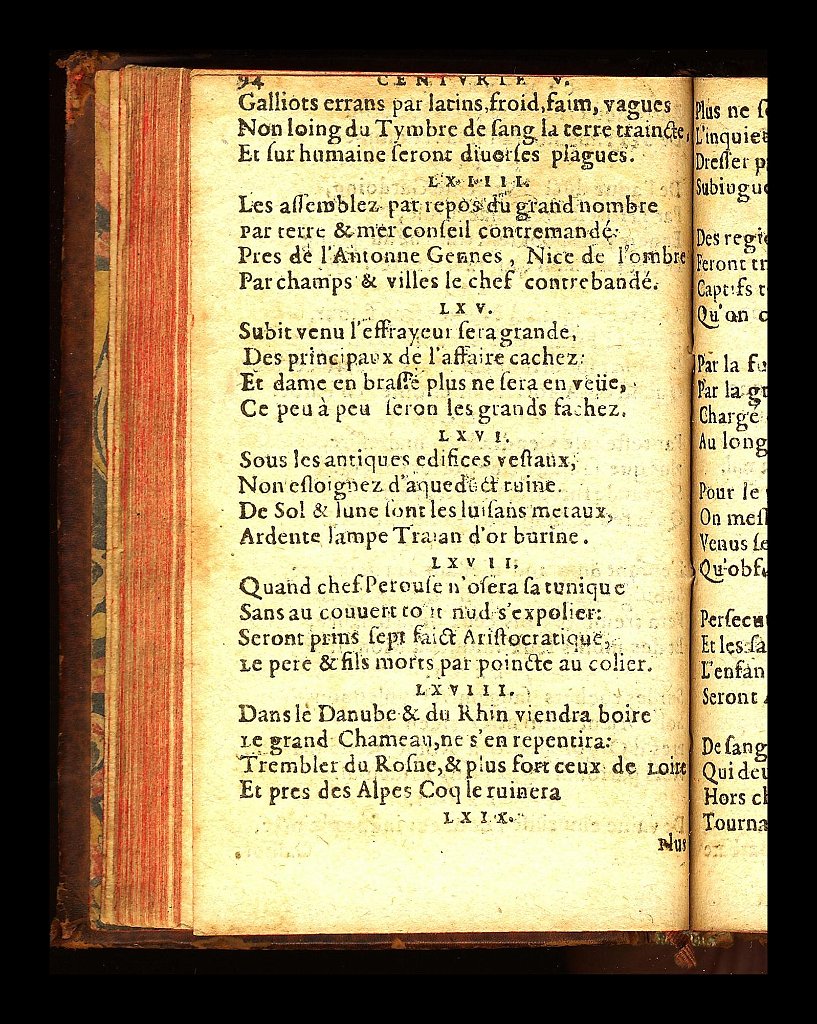 94 CENTVRIE V.
Galliots errans par latins,froid,faim, vagues
Non loing du Tymbre de sang la terre traincte,
Et sur humaine seront diuerses plagues.
LXIIII.
Les assemblez par repos du grand nombre
Par terre & mer conseil contremandé:
Pres de l'Antonne Gennes, Nice de l'ombre
Par champs & villes le chef contrebandé.
LXV.
Subit venu l'effrayeur sera grande,
Des principaux de l'affaire cachez:
Et dame en brasse plus ne sera en veüe,
Ce peu à peu seron les grands fachez.
LXVI.
Sous les antiques edifices vestaux,
Non esloignez d'aqueduct ruine.
De Sol & lune sont les luisans metaux,
Ardente lampe Traian d'or burine.
LXVII.
Quand chef Perouse n'osera sa tunique
Sans au couuert tout nud s'expolier:
Seront prins sept faict Aristocratique,
Le pere & fils morts par poincte au colier.
LXVIII.
Dans le Danube & du Rhin viendra boire
Le grand Chameau,ne s'en repentira:
Trembler du Rosne,& plus fort ceux de Loire
Et pres des Alpes Coq le ruinera
LXIX.
Plus
Plus ne
L'inquiet
Dresser
Subiugu
Des regi
Feront tr
Captifs
Qu'on
Par la
Par la
Charge
Au long
Pour le
On mes
Venus
Qu'obf
Persecut
Et les
L'enfan
Seront
De sang
Qui deu
Hors ch
Tourna